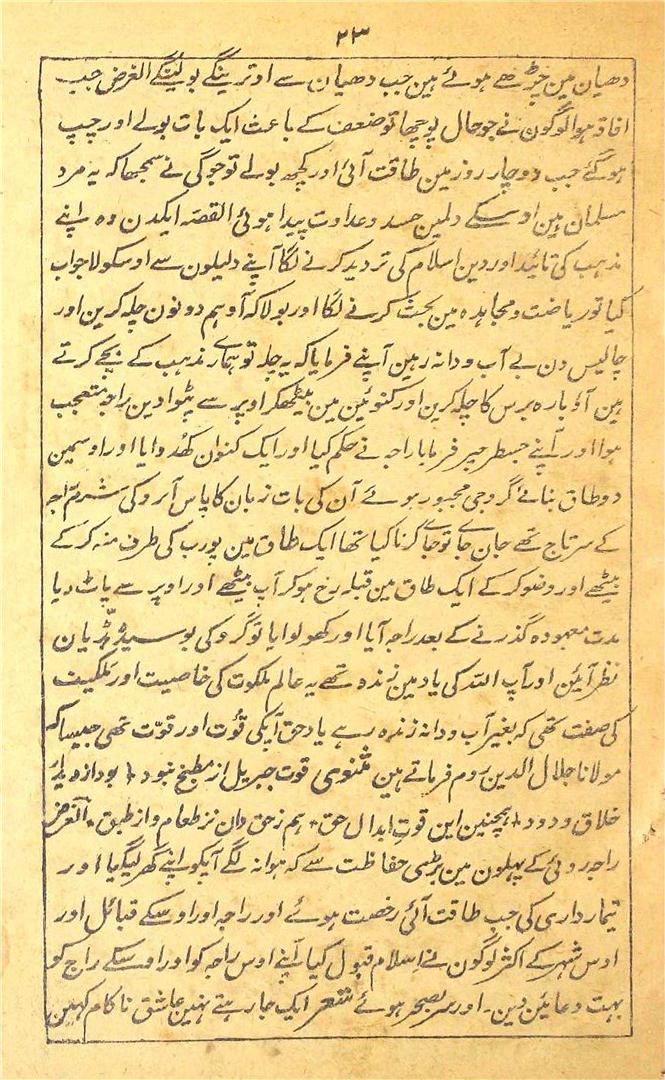 ۲۳
دھیان مین چڑھے ہوئے ہین جب دھیان سے اوترینگے بولینگے الغرض جب
افاقہ ہوا لوگون نے جو حال پوچھا تو ضعف کے باعث ایک بات بولے اور چپ
ہو گئے جب دو چار روز مین طاقت آئی اور کچھ بولے تو جوگی نے سمجھا کہ یہ مرد
مسلمان ہین اوسکے دلمین حسد و عداوت پیدا ہوئی القصہ ایکدن وہ اپنے
مذہب کی تائید اور دین اسلام کی تردید کرنے لگا آپنے دلیلون سے اوسکو لاجواب
کیا تو ریاضت و مجاہدہ مین بحث کرنے لگا اور بولا کہ آو ہم دونون چلہ کرین اور
چالیس دن بے آب و دانہ رہین آپنے فرمایا کہ یہ چلہ تو ہمارے مذہب کے بچے کرتے
ہین آؤ بارہ برس کا چلہ کرین اور کنوئین مین بیٹھکر اوپر سے پٹوا دین راجہ متعجب
ہوا اور آپنے جسطرحپر فرمایا راجہ نے حکم کیا اور ایک کنوان کھدوایا اور اوسمین
دو طاق بنائے گرو جی مجبور ہوئے آن کی بات زبان کا پاس آبرو کی شرم راجہ
کے سرتاج تھے جان جائے تو جائے کرنا کیا تھا ایک طاق مین پورب کی طرف منہ کر کے
بیٹھے اور وضو کر کے ایک طاق مین قبلہ رخ ہو کر آپ بیٹھے اور اوپر سے پاٹ دیا
مدت معہودہ گذرنے کے بعد راجہ آیا اور کھولوایا تو گرو کی بوسیدہ ہڈیان
نظر آئین اور آپ اللہ کی یاد مین زندہ تھے یہ عالم ملکوت کی خاصیت اور ملکیت
کی صفت تھی کہ بغیر آب و دانہ زندہ رہے یاد حق آپکی قُوت اور قوّت تھی جیسا کہ
مولانا جلال الدین روم فرماتے ہین مثنوی قوت جبریل از مطبخ نبود ٭ بود از دیدار
خلاق ودود ٭ ہمچنین این قوت ابدال حق ٭ ہم زحق دان نز طعام و از طبق ٭ الغرض
راجہ روئی کے پہلون مین بڑی حفاظت سے کہ ہوا نہ لگے آپکو اپنے گھر لیگیا اور
تیمارداری کی جب طاقت آئی رخصت ہوئے اور راجہ اور اوسکے قبائل اور
اوس شہر کے اکثر لوگون نے اسلام قبول کیا آپنے اوس راجہ کو اور اوسکے راج کو
بہت دعائین دین۔ اور سر بصحر ہوئے شعر ایک جا رہتے نہین عاشق ناکام کہین